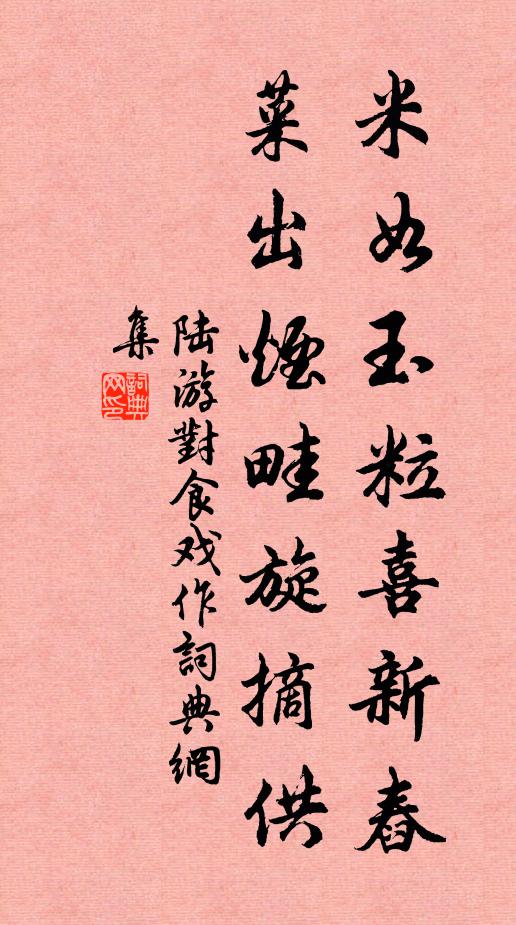 米如玉粒喜新舂
菜出煙畦旋摘供
陆游對食戏作詞典網
集
詞典网印